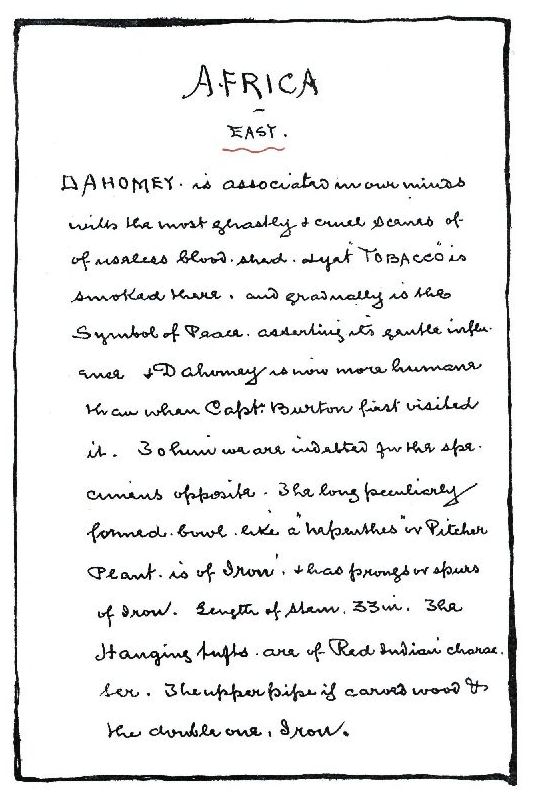 AFRICA
EAST.
DAHOMEY. is associated in our minds
with the most ghastly & cruel scenes of
of useless blood-shed. & yet "TOBACCO" is
smoked there. and gradually is the
Symbol of Peace. asserting its gentle influ-
ence & Dahomey is now more humane
than when Capt. Burton first visited
it. To him we are indebted for the spe-
cimens opposite. The long peculiarly
formed bowl. like a "nepenthes" or Pitcher
Plant. is of Iron. & has prongs or spurs
of Iron. Length of Stem. 33 in. The
Hanging tufts. are of Red Indian charac-
ter. The upper pipe is carved wood &
the double one, Iron.